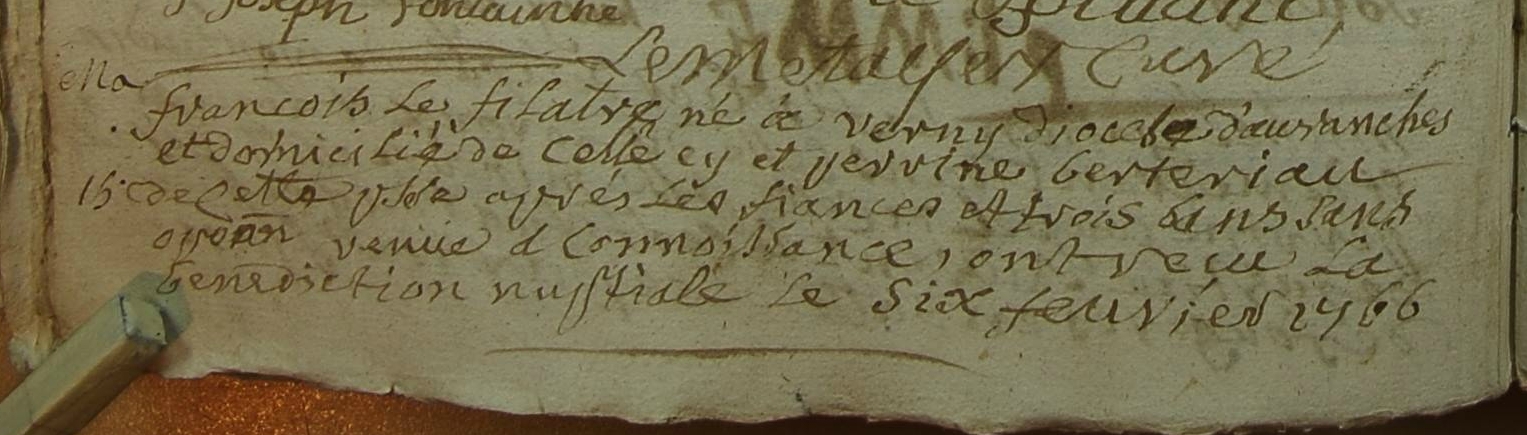 joseph fontainne
LeMetaeyer Curé
Ma
francois Le filatre né a verny diocese d'auranches
et domicilié de Celle cy et perrine berteriau
15 de Cette psse aprés Les fiances et trois bans sans
opoãn venue a Connoissance, ont receu La
benediction nuptiale Le Six feuvrier 1766